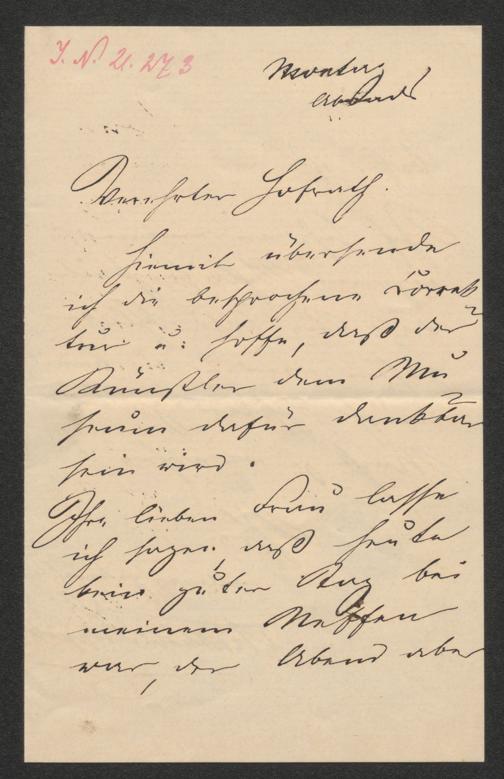 I. N. 21.273
Montag
Abends
Verehrter Hofrath.
Hiemit übersende
ich die besprochene Korrek-
tur u: hoffe, daß der
Künstler dem Mu-
seum dafür dankbar
sein wird.
Ihre lieben Frau lasse
ich sagen, daß heute
kein guter Tag bei
meinem Neffen
war, der Abend aber